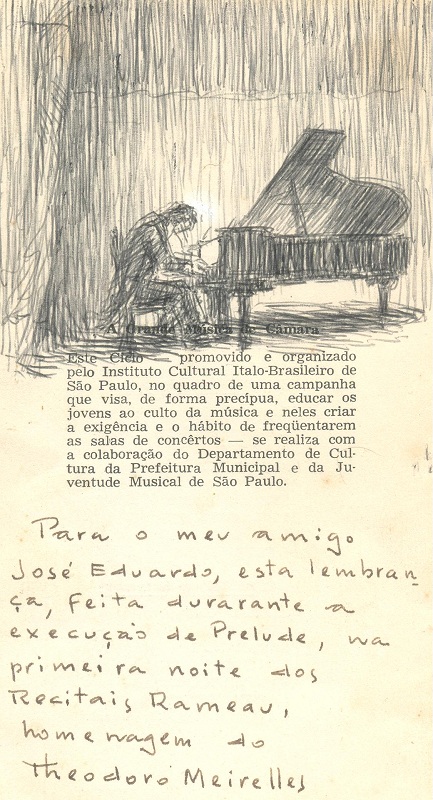 A Grande Música de Câmara
Este Ciclo promovido e organizado
pelo Instituto Cultural Italo-Brasileiro de
São Paulo, no quadro de uma campanha
que visa, de forma precípua, educar os
jovens ao culto da música e neles criar
a exigência e o hábito de freqüentarem
as salas de concêrtos — se realiza com
a colaboração do Departamento de Cul-
tura da Prefeitura Municipal e da Ju-
ventude Musical de São Paulo.
Para o meu amigo
José Eduardo, esta lembran
ça, feita durarante a
execução de Prelude, na
primeira noite dos
Recitais Rameau,
homenagem do
Theodoro Meirelles